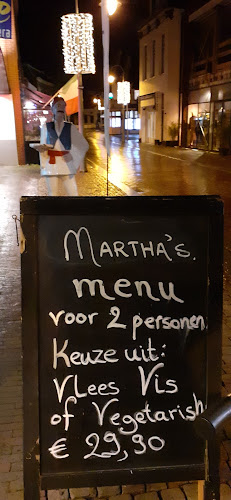 MARTHA'S.
menu
voor 2 personen.
Keuze uit:
Vlees Vis
of Vegetarish
€ 29,90